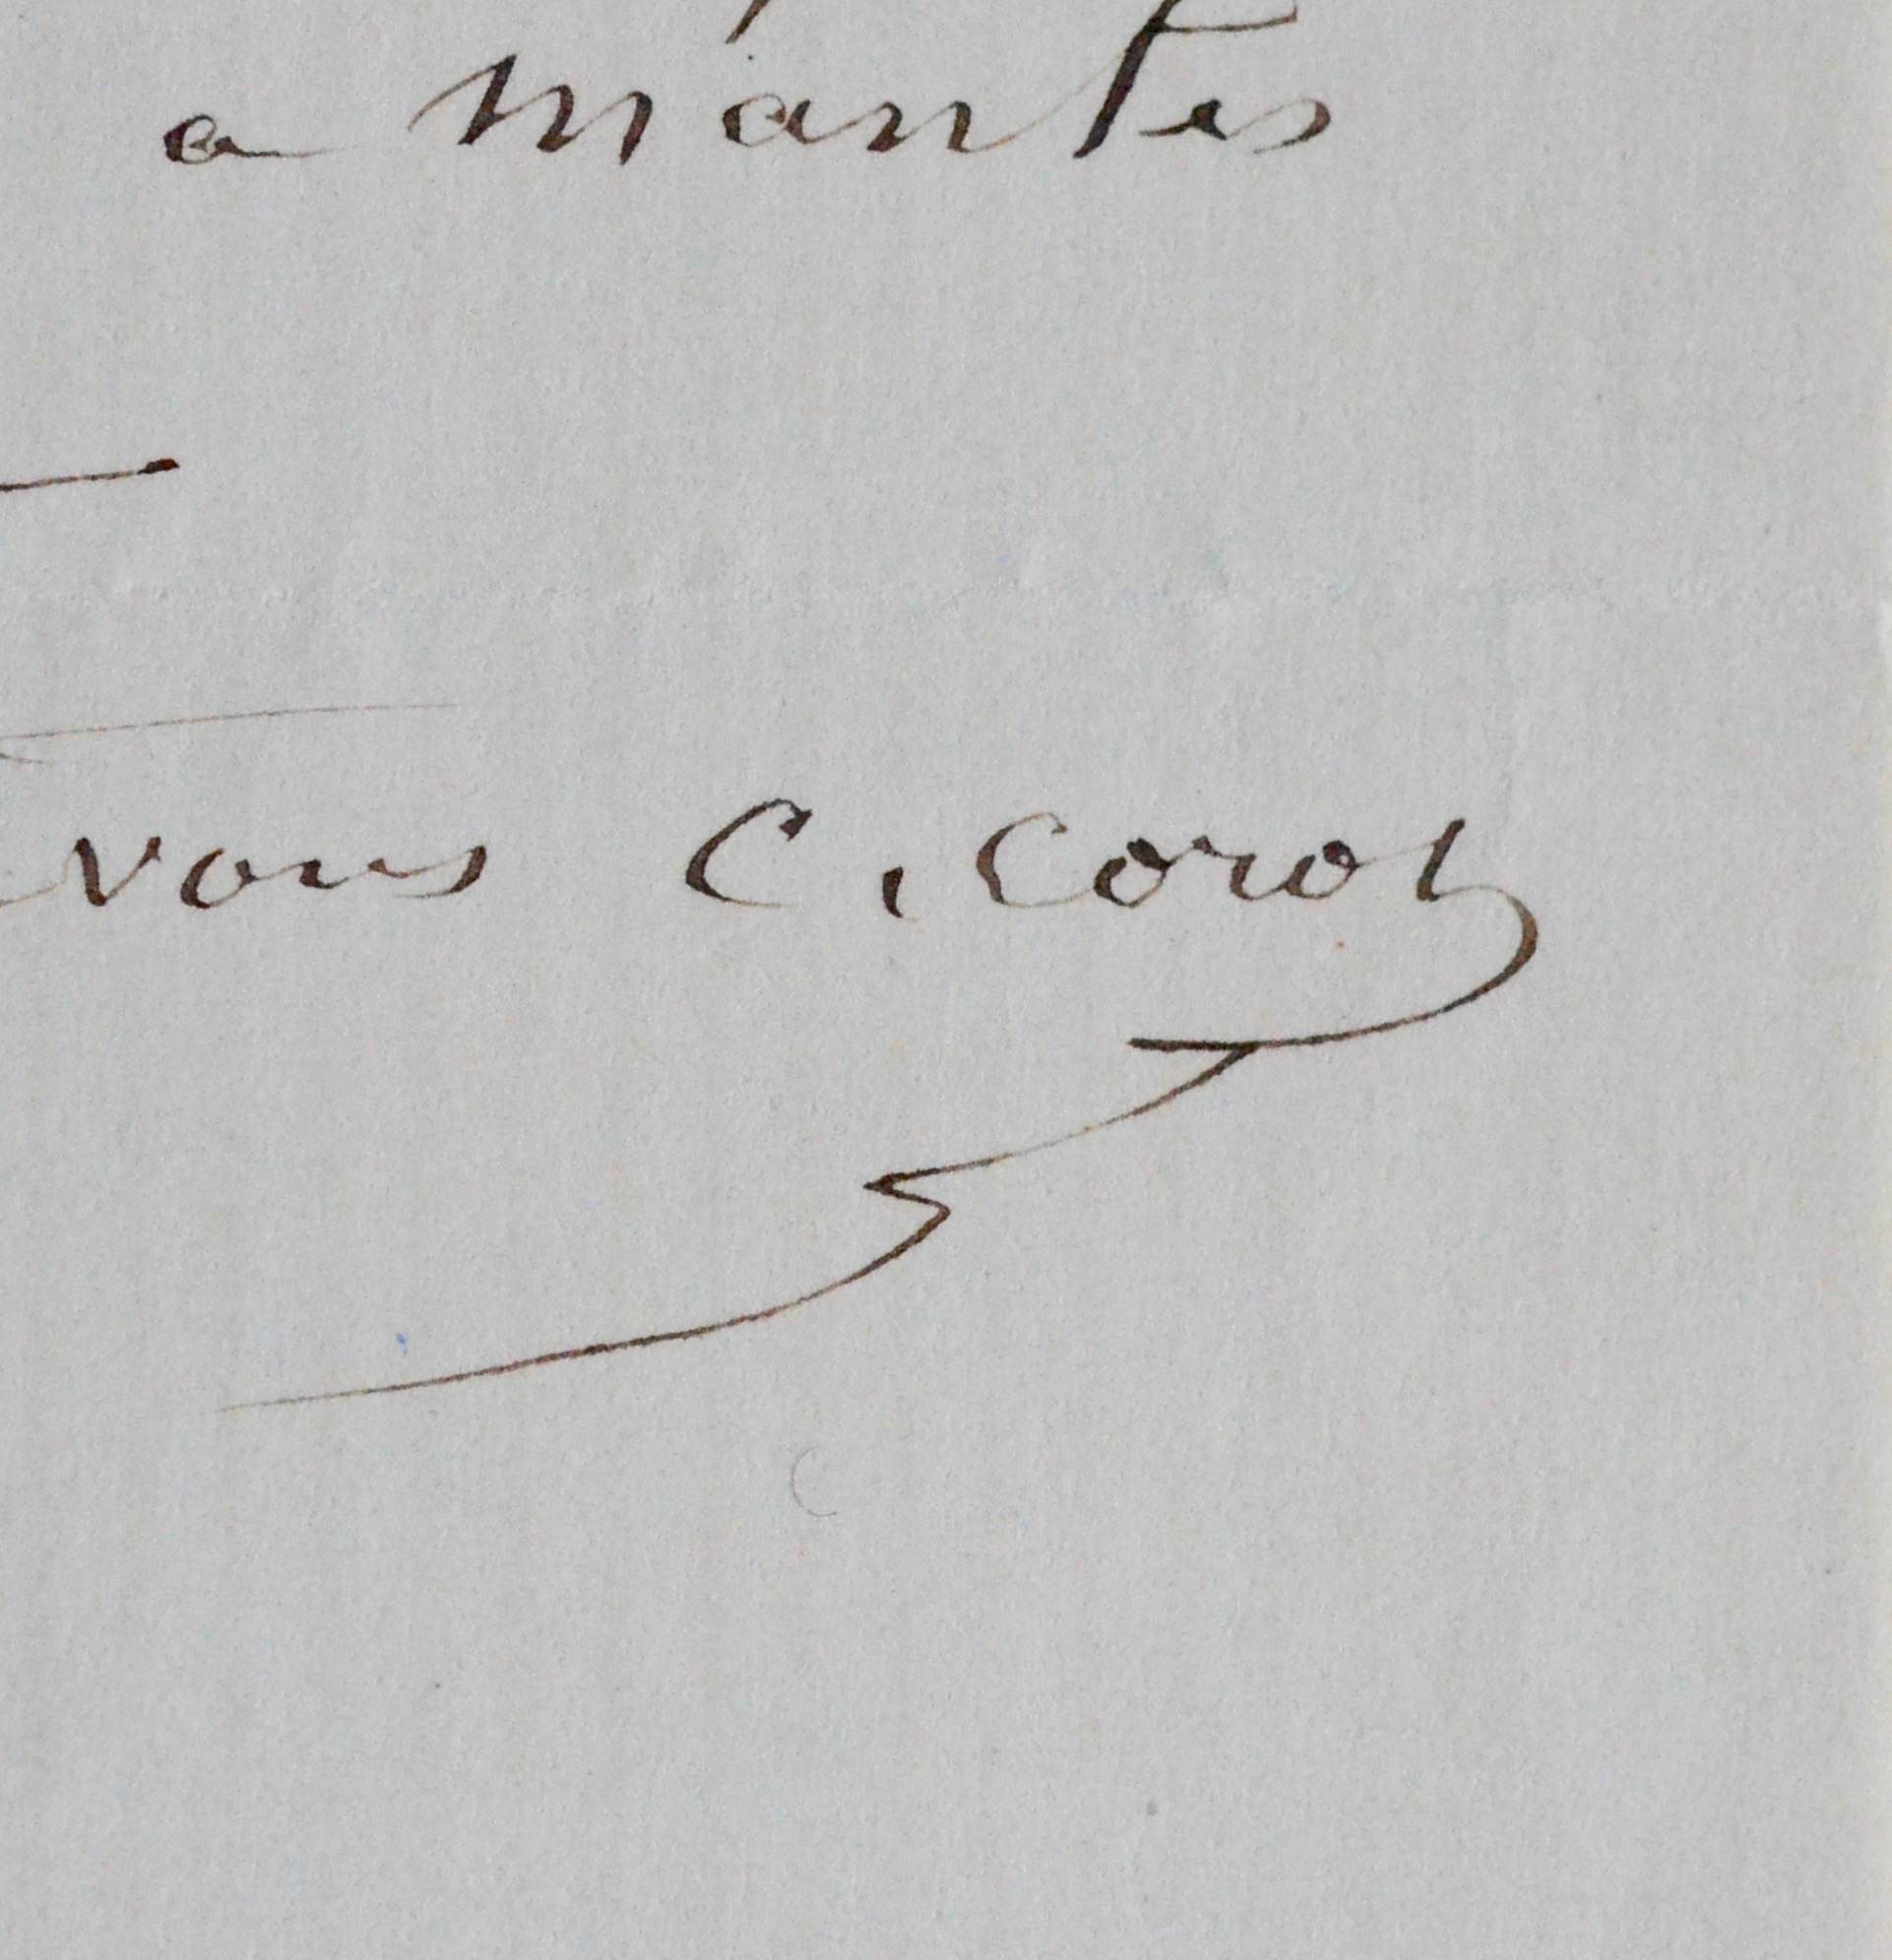 a mantes
vous C. Corot